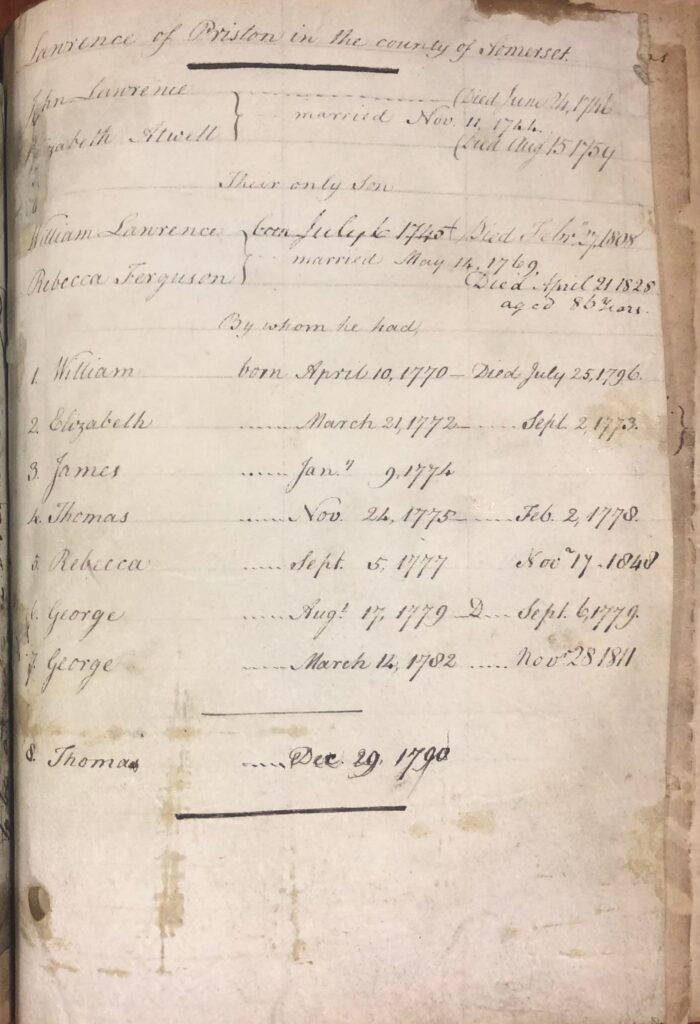 Lawrence of Priston in the county of Somerset.
John Lawrence (Died June 24, 1746
married Nov. 11, 1744.
Elizabeth Atwell (Died Aug 15 1759
Their only Son
William Lawrence born July 6 1745 Died Feb.ʸ 27, 1808
married May 14, 1769,
Rebecca Ferguson Died April 21 1828
aged 86 Years.
By whom he had,
1. William born April 10, 1770 — Died July 25, 1796.
2. Elizabeth ..... March 21, 1772 — ..... Sept. 2, 1773.
3. James ..... Jan.ʸ 9, 1774
4. Thomas ..... Nov. 24, 1775 — ..... Feb. 2, 1778.
5. Rebecca ..... Sept. 5, 1777 Novʳ 17 - 1848
6. George ..... Augᵗ 17, 1779 — D.... Sept. 6, 1779.
7. George ..... March 14, 1782 ..... Novʳ 28 1811
8. Thomas ..... Dec. 29, 1790